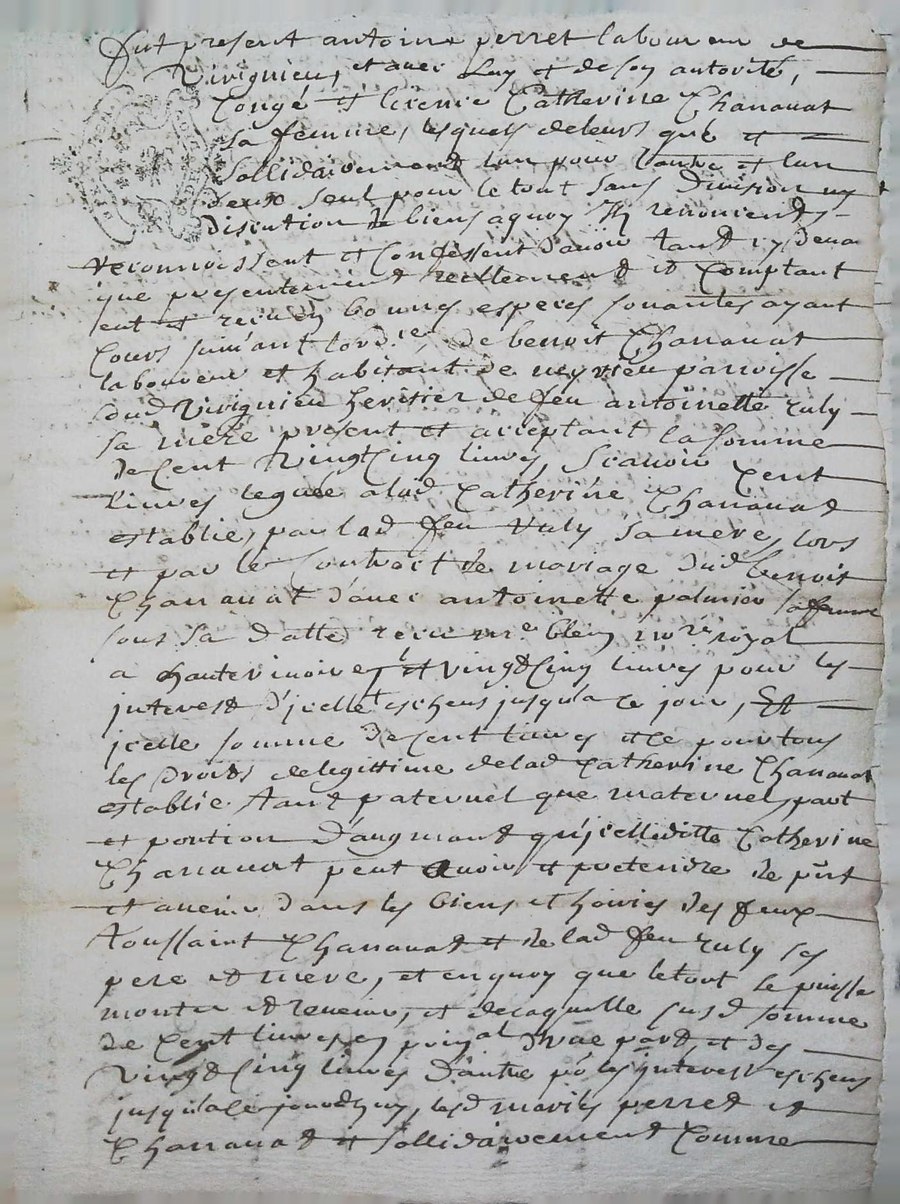 Fut present antoine perret laboureur de
Virignieu, et avec luy et de son autorité,
Congé et licence Catherine Charravat
sa femme, lesquels deleurs gré et
sollidairement lun pour lautre et lun
deux seul pour le tout sans Division ny
discution de biens aquoy Ils renoncient
reconnoissent et Confessent d'avoir tant cy devant
que presentement reellement et Comptant
eut et receu en bonnes especes sonantes ayant
Cours suivant lord.re, de benoit Charravat
laboureur et habitant de parroisse
dud Virignieu heritier de feu antoinette ruly
sa mere present et acceptant la somme
de Cent Vingt Cinq livres, scavoir Cent
livres leguée a lad Catherine Charravat
establie, par lad feu ruly sa mere, lors
et par le Contract de mariage dud benoit
Charravat d'avec antoinette palmier sa femme
sous sa datte receu m.e no.re royal
a , et vingt Cinq livres pour les
interest d'jcelle escheus jusqu'a ce jour, Et
jcelle somme de Cent livres et ce pour tous
les droits delegittime delad Catherine Charravat
establie tant paternel que maternel, part
et portion d'augmant qu'jcelleditte Catherine
Charravat peut avoir et pretendre de pnt
et avenir dans les biens et hoiries des feux
Toussaint Charravat et de lad feu ruly ses
pere et mere, et en quoy que le tout se puisse
monter et revenir, et delaquelle susd somme
de Cent livres en prinal d'une part, et des
Vingt Cinq livres d'autre po les interest escheus
jusqu'a ce jourdhuy, lesd mariés perret et
Charravat et sollidairement Comme